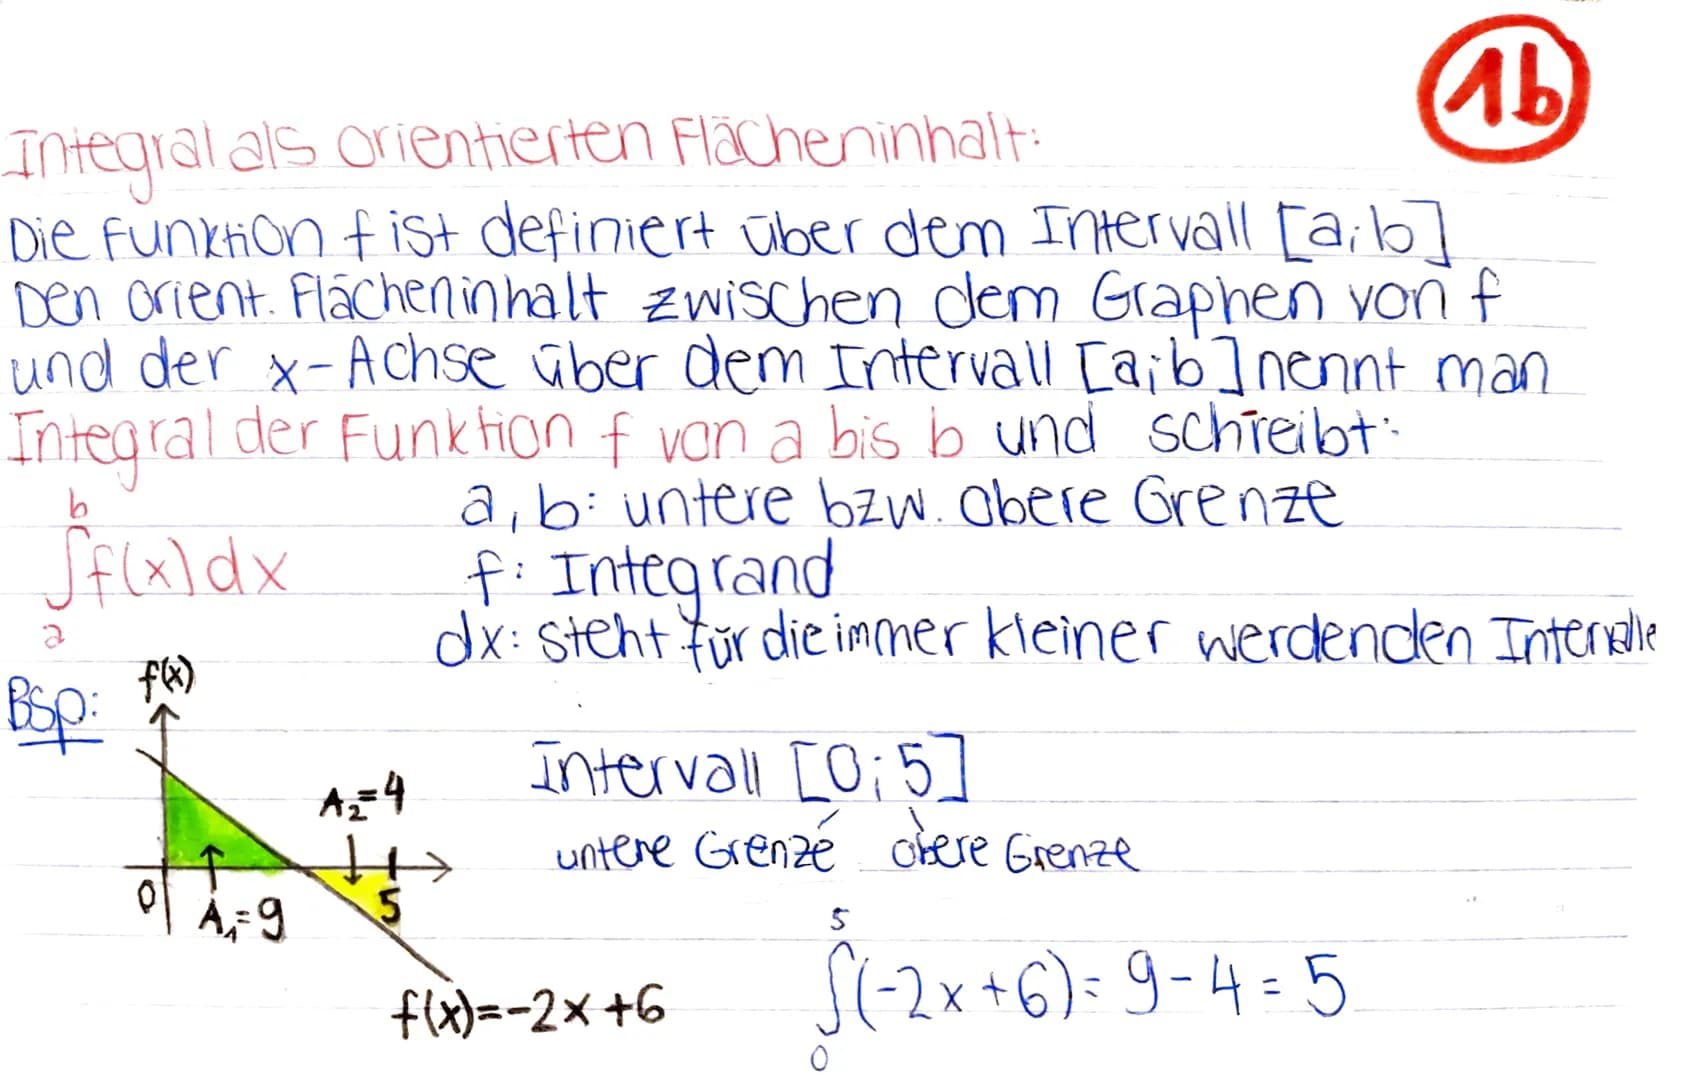 1b
Integral als orientierten Flächeninhalt:
Die Funktion f ist definiert über dem Intervall [a;b]
Den orient. Flächeninhalt zwischen dem Graphen von f
und der x-Achse über dem Intervall [a;b] nennt man
Integral der Funktion f von a bis b und schreibt:
b
∫f(x)dx
a
a, b: untere bzw. obere Grenze
f: Integrand
dx: steht für die immer kleiner werdenden Intervalle
Bsp:
f(x)
A₂=4
0
5
A₁=9
f(x)=-2x+6
Intervall [0;5]
untere Grenze obere Grenze
5
∫(-2x+6)=9-4=5
0